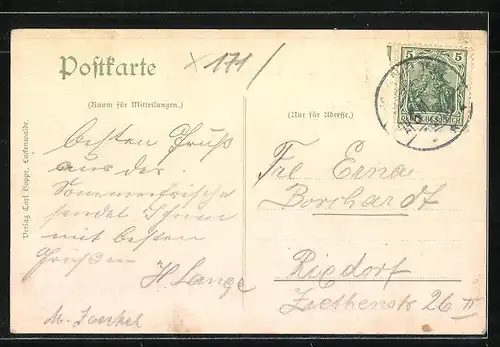 Postkarte
× 171/
(Raum für Mitteilungen.)
(Nur für Adresse.)
5 5
DEUTSCHES REICH
Verlag Carl Hoppe, Luckenwalde.
besten Gruß
aus der
Sommerfrische
sendet Ihnen
mit besten
Grüßen
H Lange
Frl Erna
Borchardt
Rixdorf
Ziethenstr 26 II